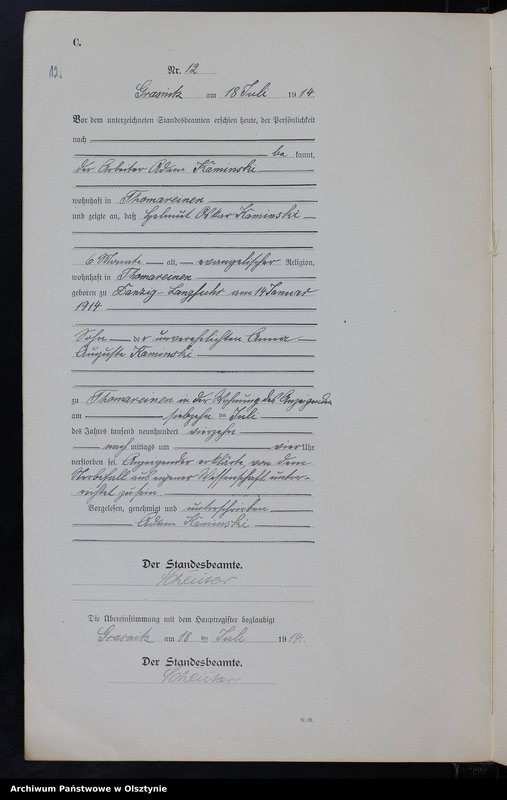 C.
12.
Nr. 12
Grasnitz am 18 Juli 1914
Vor dem unterzeichneten Standesbeamten erschien heute, der Persönlichkeit
nach
be kannt,
der Arbeiter Adam Kaminski
wohnhaft in Thomareinen
und zeigte an, daß Helmut Oskar Kaminski
6 Monate alt, evangelischer Religion,
wohnhaft in Thomareinen
geboren zu Danzig-Langfuhr am 14 Januar
1914
Sohn der unverehelichten Anna
Auguste Kaminski
zu Thomareinen in der Wohnung des Anzeigenden
am siebzehn ten Juli
des Jahres tausend neunhundert vierzehn
nach mittags um vier Uhr
verstorben sei. Anzeigender erklärte, von dem
Sterbefall aus eigener Wissenschaft unter-
richtet zu sein.
Vorgelesen, genehmigt und unterschrieben
Adam Kaminski
Der Standesbeamte.
Die Übereinstimmung mit dem Hauptregister beglaubigt
Grasnitz am 18 ten Juli 1914.
Der Standesbeamte.
Archiwum Państwowe w Olsztynie